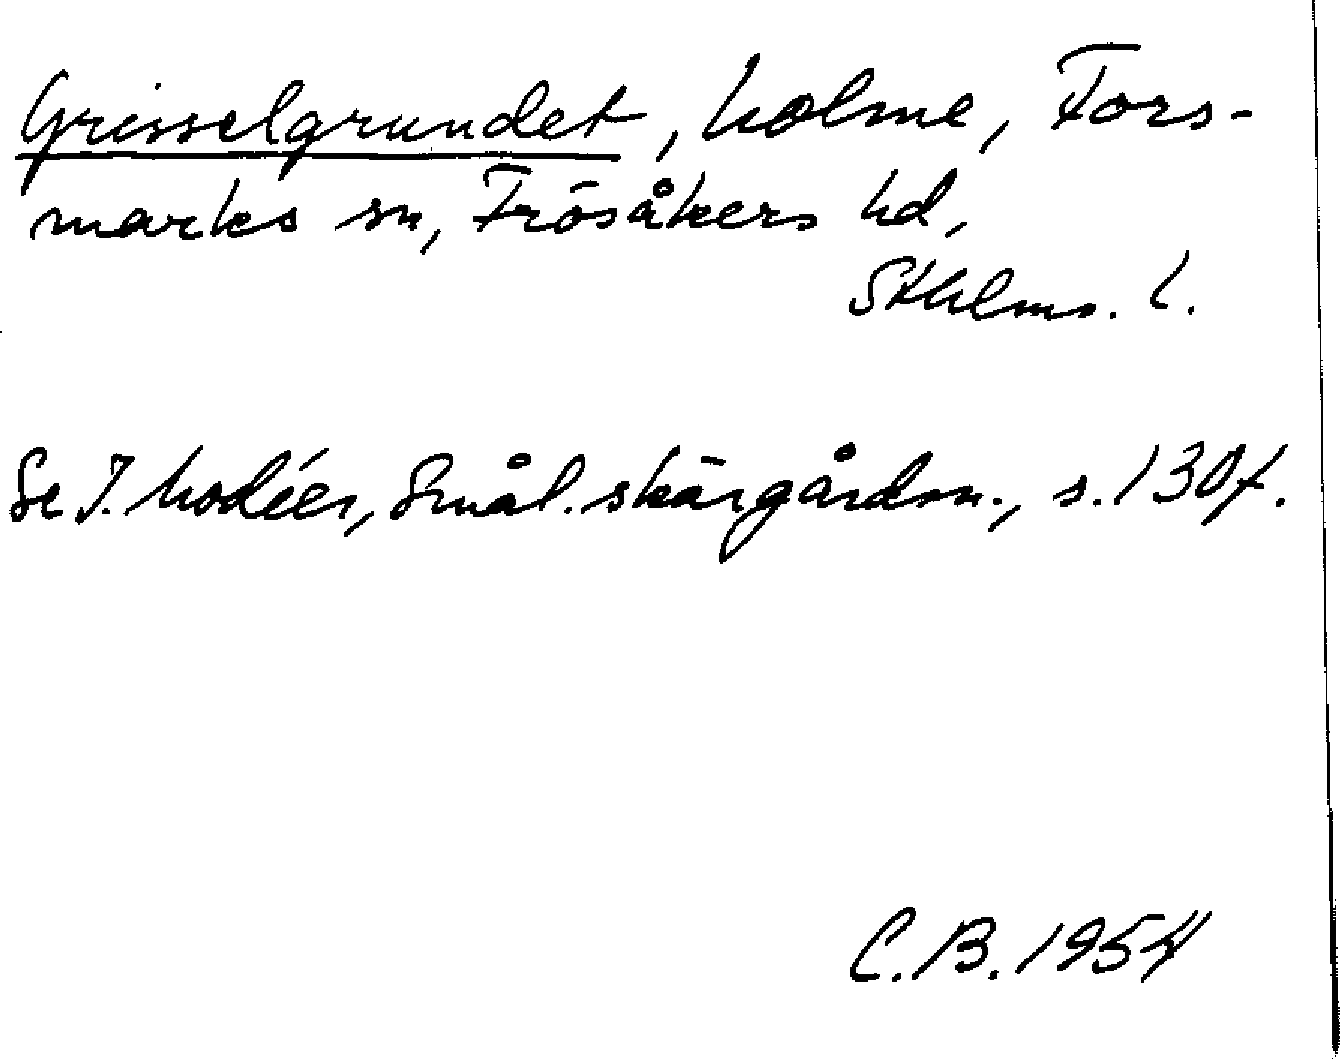 Grisselgrundet, holme, Fors-
marks sn, Frösåkers hd,
Sthlms. l.
Se I. Modéer, Smål. skärgårdsn., s. 130f.
C.B. 1954